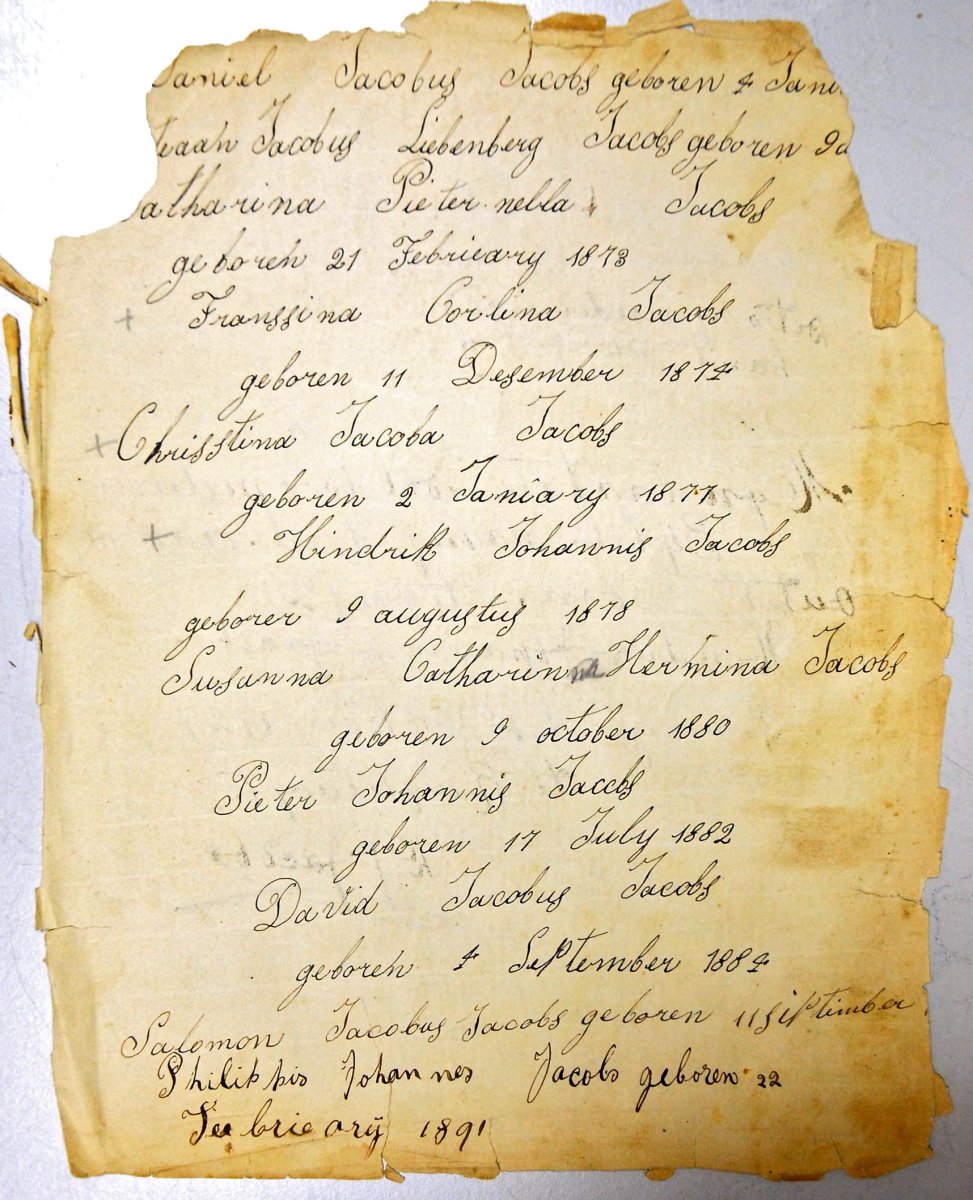 Daniel Jacobus Jacobs geboren 4 Jani
Jacobus Liebenberg Jacobs geboren 9
atharina Pieternella Jacobs
geboren 21 Februeary 1873
+ Franssina Corlina Jacobs
geboren 11 Desember 1874
+ Chrisstina Jacoba Jacobs
geboren 2 Janiary 1877
+ Hindrik Johannis Jacobs
geborer 9 augustus 1878
Susanna Catharinna Hermina Jacobs
geboren 9 october 1880
Pieter Johannis Jacobs
geboren 17 July 1882
David Jacobus Jacobs
geboren 4 September 1884
Salomon Jacobus Jacobs geboren 11 siptimber
Philippis Johannes Jacobs geboren 22
Feebrieary 1891